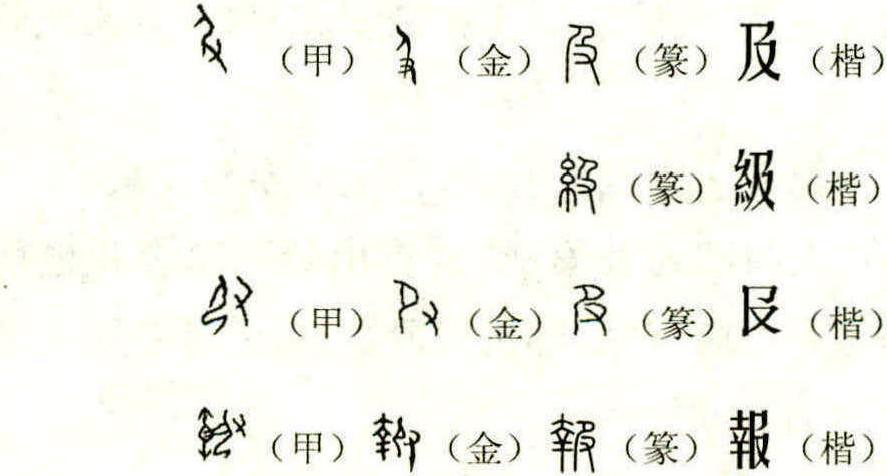 （甲）（金）（篆）及（楷）
（篆）級（楷）
（甲）（金）（篆）𠬝（楷）
（甲）（金）（篆）報（楷）